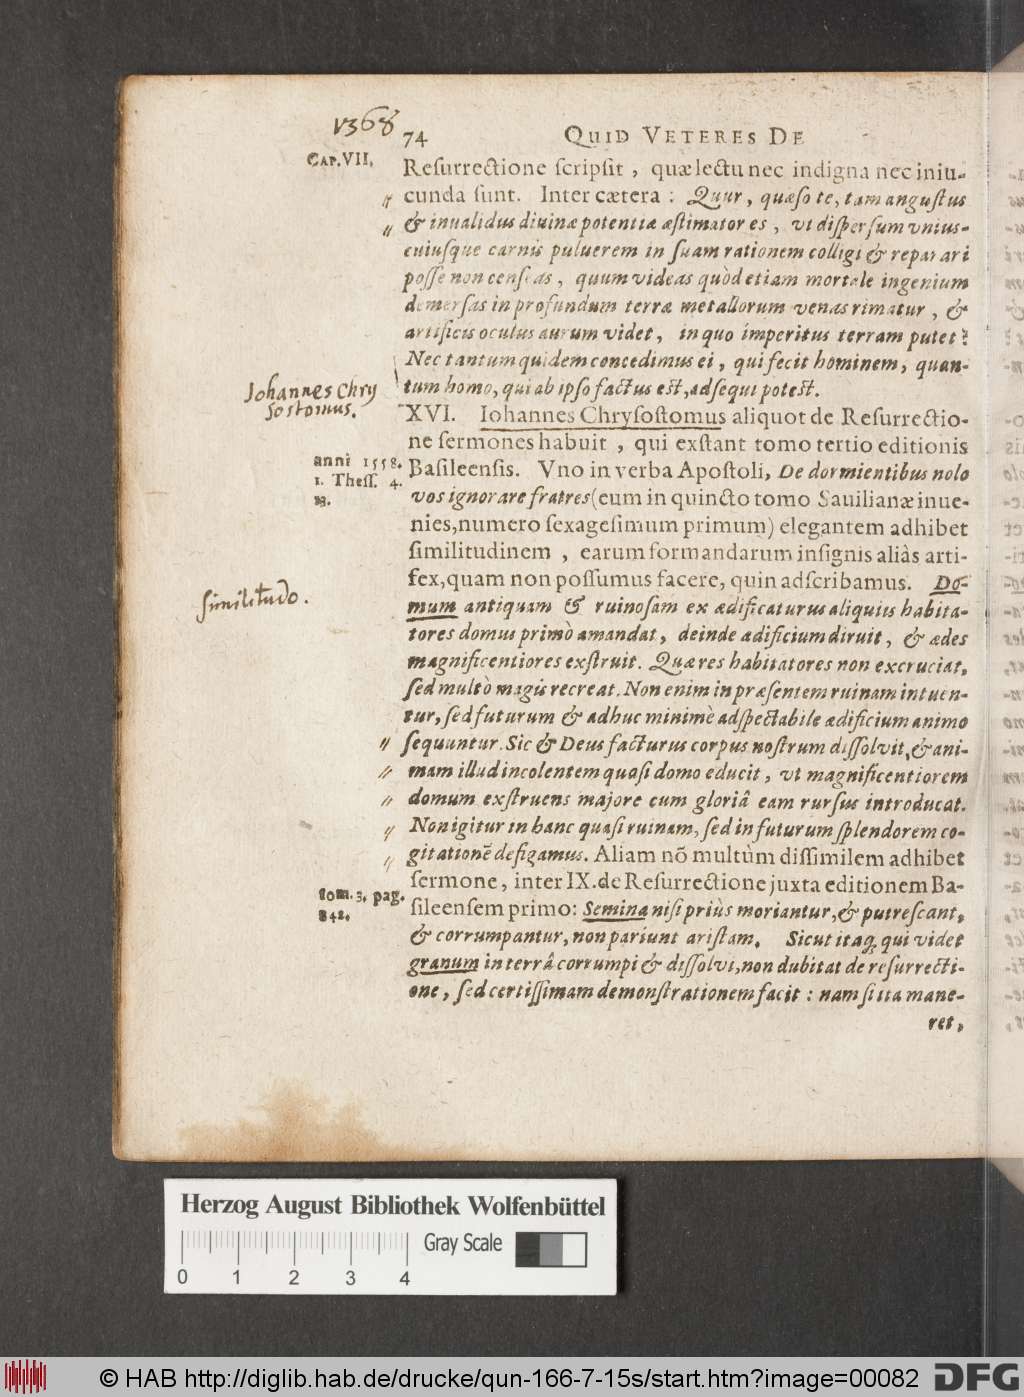 1368
74 QUID VETERES DE
CAP. VII.
Reſurrectione ſcripſit, quæ lectu nec indigna nec iniu-
cunda ſunt. Inter cætera: Quur, quæſo te, tam anguſtus
& inualidus diuinæ potentiæ æſtimator es, vt diſperſum vnius-
cuiuſque carnis puluerem in ſuam rationem colligi & reparari
poſſe non cenſeas, quum videas quòd etiam mortale ingenium
demerſas in profundum terræ metallorum venas rimatur, &
artificis oculus aurum videt, in quo imperitus terram putet?
Nec tantum quidem concedimus ei, qui fecit hominem, quan-
tum homo, qui ab ipſo factus eſt, adſequi poteſt.
Johannes Chry
sostomus.
XVI. Iohannes Chryſoſtomus aliquot de Reſurrectio-
ne ſermones habuit, qui exſtant tomo tertio editionis
anni 1558.
1. Theſſ. 4.
13.
Baſileenſis. Vno in verba Apoſtoli, De dormientibus nolo
vos ignorare fratres (eum in quincto tomo Sauilianæ inue-
nies, numero ſexageſimum primum) elegantem adhibet
ſimilitudinem, earum formandarum inſignis aliàs arti-
fex, quam non poſſumus facere, quin adſcribamus. Do-
Similitudo.
mum antiquam & ruinoſam ex ædificaturus aliquius habita-
tores domus primò amandat, deinde ædificium diruit, & ædes
magnificentiores exſtruit. Quæ res habitatores non excruciat,
ſed multò magis recreat. Non enim in præſentem ruinam intuen-
tur, ſed futurum & adhuc minimè adſpectabile ædificium animo
ſequuntur. Sic & Deus facturus corpus noſtrum diſſolvit, & ani-
mam illud incolentem quaſi domo educit, vt magnificentiorem
domum exſtruens majore cum gloriâ eam rurſus introducat.
Non igitur in hanc quaſi ruinam, ſed in futurum ſplendorem co-
gitationē defigamus. Aliam nō multùm diſſimilem adhibet
ſermone, inter IX. de Reſurrectione juxta editionem Ba-
tom. 3. pag.
842.
ſileenſem primo: Semina niſi priùs moriantur, & putreſcant,
& corrumpantur, non pariunt ariſtam. Sicut itaq; qui videt
granum in terrâ corrumpi & diſſolvi, non dubitat de reſurrecti-
one, ſed certiſſimam demonſtrationem facit: nam ſi ita mane-
ret,
Herzog August Bibliothek Wolfenbüttel
Gray Scale
0 1 2 3 4
© HAB http://diglib.hab.de/drucke/qun-166-7-15s/start.htm?image=00082
DFG